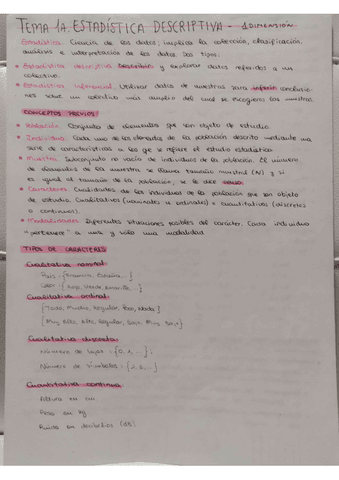 TEMA 1A ESTADÍSTICA DESCRIPTIVA - 1 DIMENSIÓN
Estadística: Ciencia de los datos; implica la colección, clasificación,
análisis e interpretación de los datos.
• Estadística descriptiva: Describir y explorar datos referidos a un
colectivo.
• Estadística inferencial: Utilizar datos de muestras para inferir conclusio-
nes sobre un colectivo más amplio del cual se recogieron las muestras.
CONCEPTOS PREVIOS
• Población: Conjunto de elementos que son objeto de estudio.
• Individuo: Cada uno de los elementos de la población descrito mediante una
serie de características a las que se refiere el estudio estadístico.
• Muestra: Subconjunto no vacío de individuos de la población. El número
de elementos de la muestra se llama tamaño muestral (N) y si
es igual al tamaño de la población, se le dice censo.
• Caracteres: Cualidades de los individuos de la población que son objeto
de estudio. Cualitativos (nominales u ordinales) o cuantitativos (discretos
o continuos).
• Modalidades: Diferentes situaciones posibles del carácter. Cada individuo
pertenece a una y solo una modalidad.
TIPOS DE CARACTERES
Cualitativa nominal
País: {Francia, España...}
Color: {Rojo, Verde, Amarillo...}
Cualitativa ordinal
{Todo, Mucho, Regular, Poco, Nada}
{Muy Alto, Alto, Regular, Bajo, Muy Bajo}
Cuantitativa discreta
Número de hijos: {0, 1, ...}
Número de : {2, 3, ...}
Cuantitativa continua
Altura en cm
Peso en kg
Ruido en decibelios (dB)